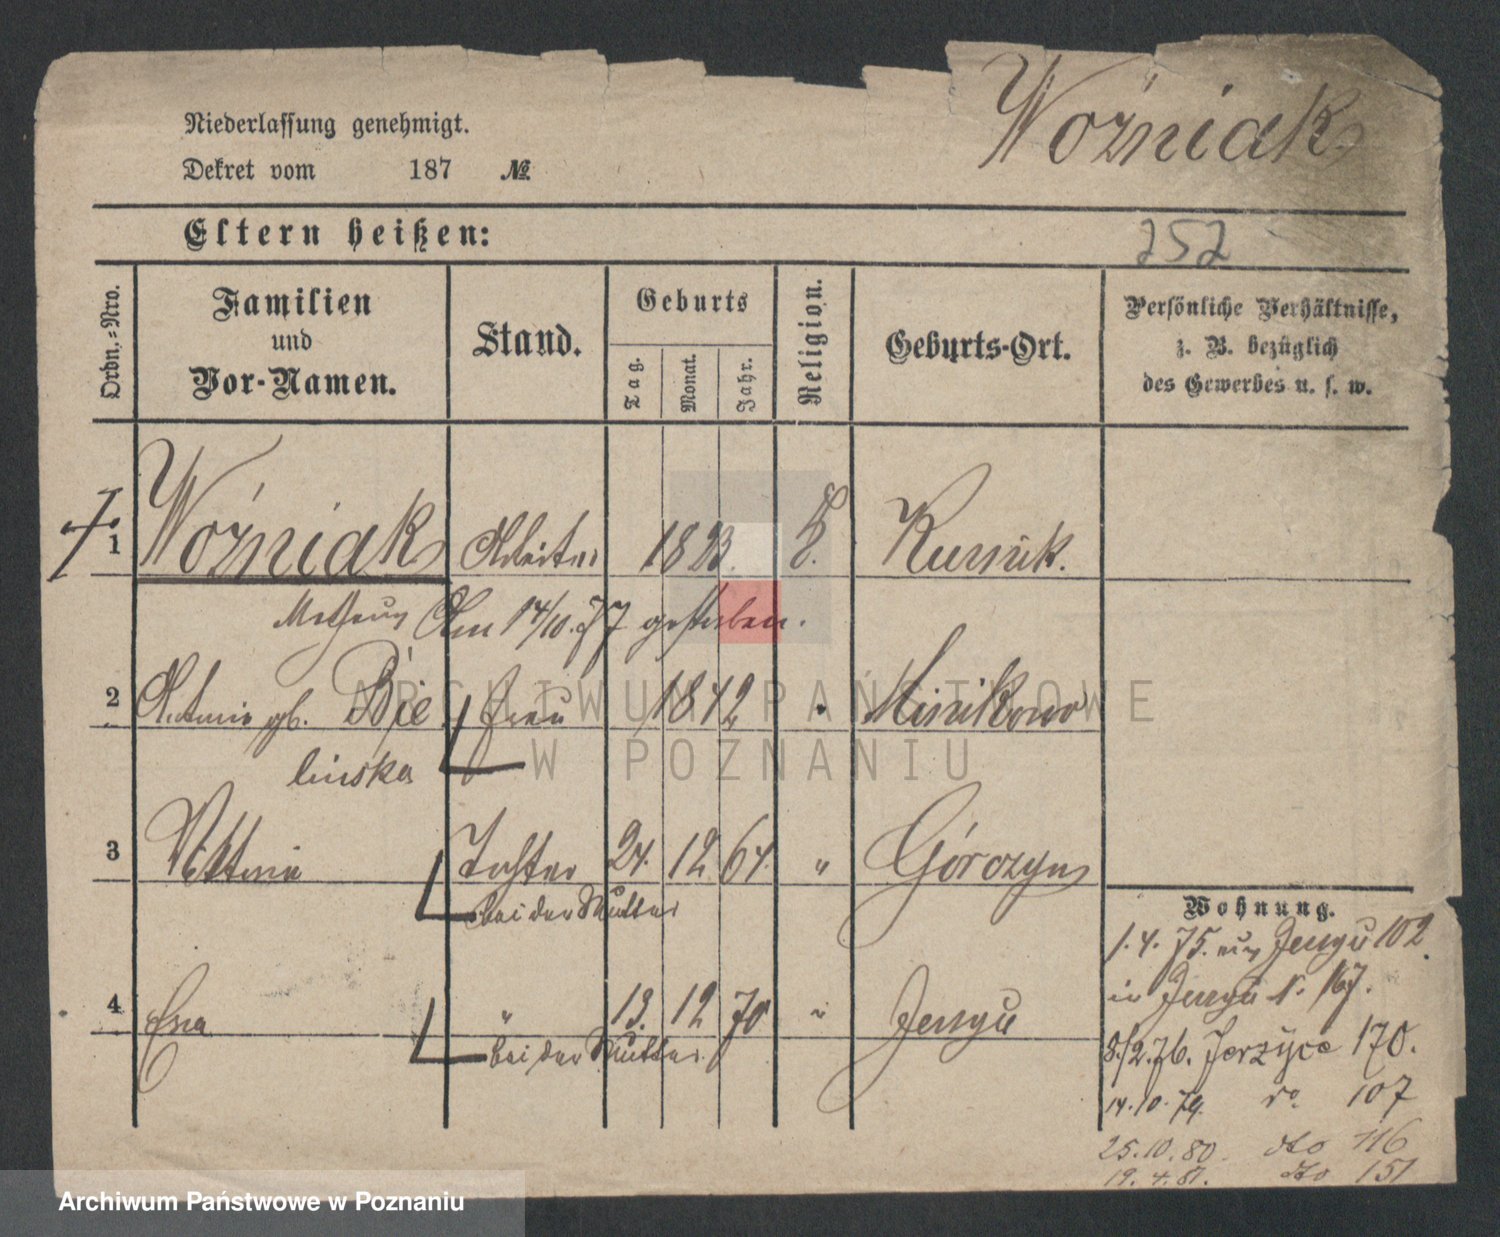 Woźniak
Niederlassung genehmigt.
Dekret vom 187 №
Eltern heißen:
252
Ordn.=Nro.
Familien
und
Vor-Namen.
Stand.
Geburts
Tag.
Monat.
Jahr.
Religion.
Geburts-Ort.
Persönliche Verhältnisse,
z. B. bezüglich
des Gewerbes u. s. w.
1 Woźniak Arbeiter 1823. K. Kurnik.
Matheus Am 14/10.77 gestorben.
2 Antonie gb. Bie Frau 1842 " Minikowo
linska
3 Viktoria Tochter 24. 12 64. " Górczyn
bei der Mutter
4 Eva " 13. 12 70 " Jersyce
bei der Mutter
Wohnung.
1.4.75. aus Jersyce 102.
in Jersyce N. 167.
8./2.76. Jerzyce 170.
14.10.79. do. 107
25.10.80. dto 116
19.4.81. dto 151
ARCHIWUM PAŃSTWOWE
W POZNANIU
Archiwum Państwowe w Poznaniu